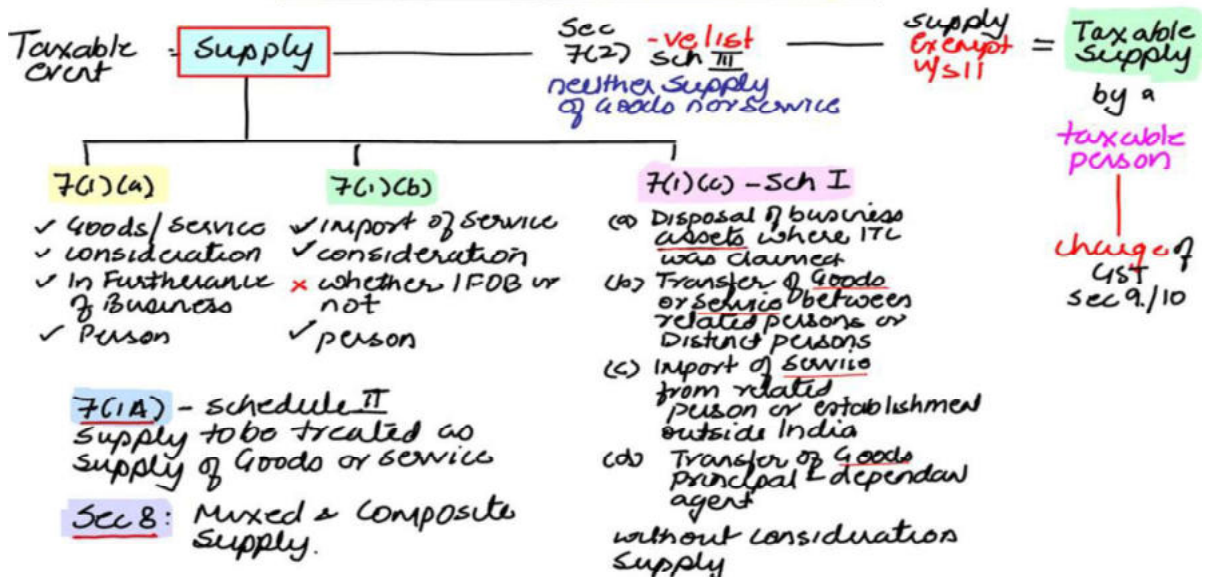 Taxable
event
Supply
Sec
7(2)
-ve list
Sch III
neither supply
of Goods nor service
supply
exempt
u/s 11
=
Taxable
Supply
by a
taxable
person
charge of
GST
sec 9/10
7(1)(a)
✓ Goods/Service
✓ consideration
✓ In Furtherance
of Business
✓ Person
7(1)(b)
✓ import of service
✓ consideration
× whether IFOB or
not
✓ person
7(1)(c) - Sch I
(a) Disposal of business
assets where ITC
was claimed
(b) Transfer of Goods
or service between
related persons or
Distinct persons
(c) Import of service
from related
person or establishment
outside India
(d) Transfer of Goods
principal & dependan
agent
without consideration
supply
7(1A) - schedule II
supply to be treated as
supply of Goods or service
Sec 8: Mixed & Composite
Supply.